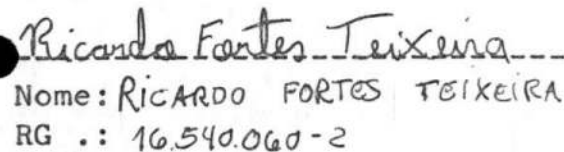 Ricardo Fortes Teixeira
Nome: RICARDO FORTES TEIXEIRA
RG .: 16.540.060-2